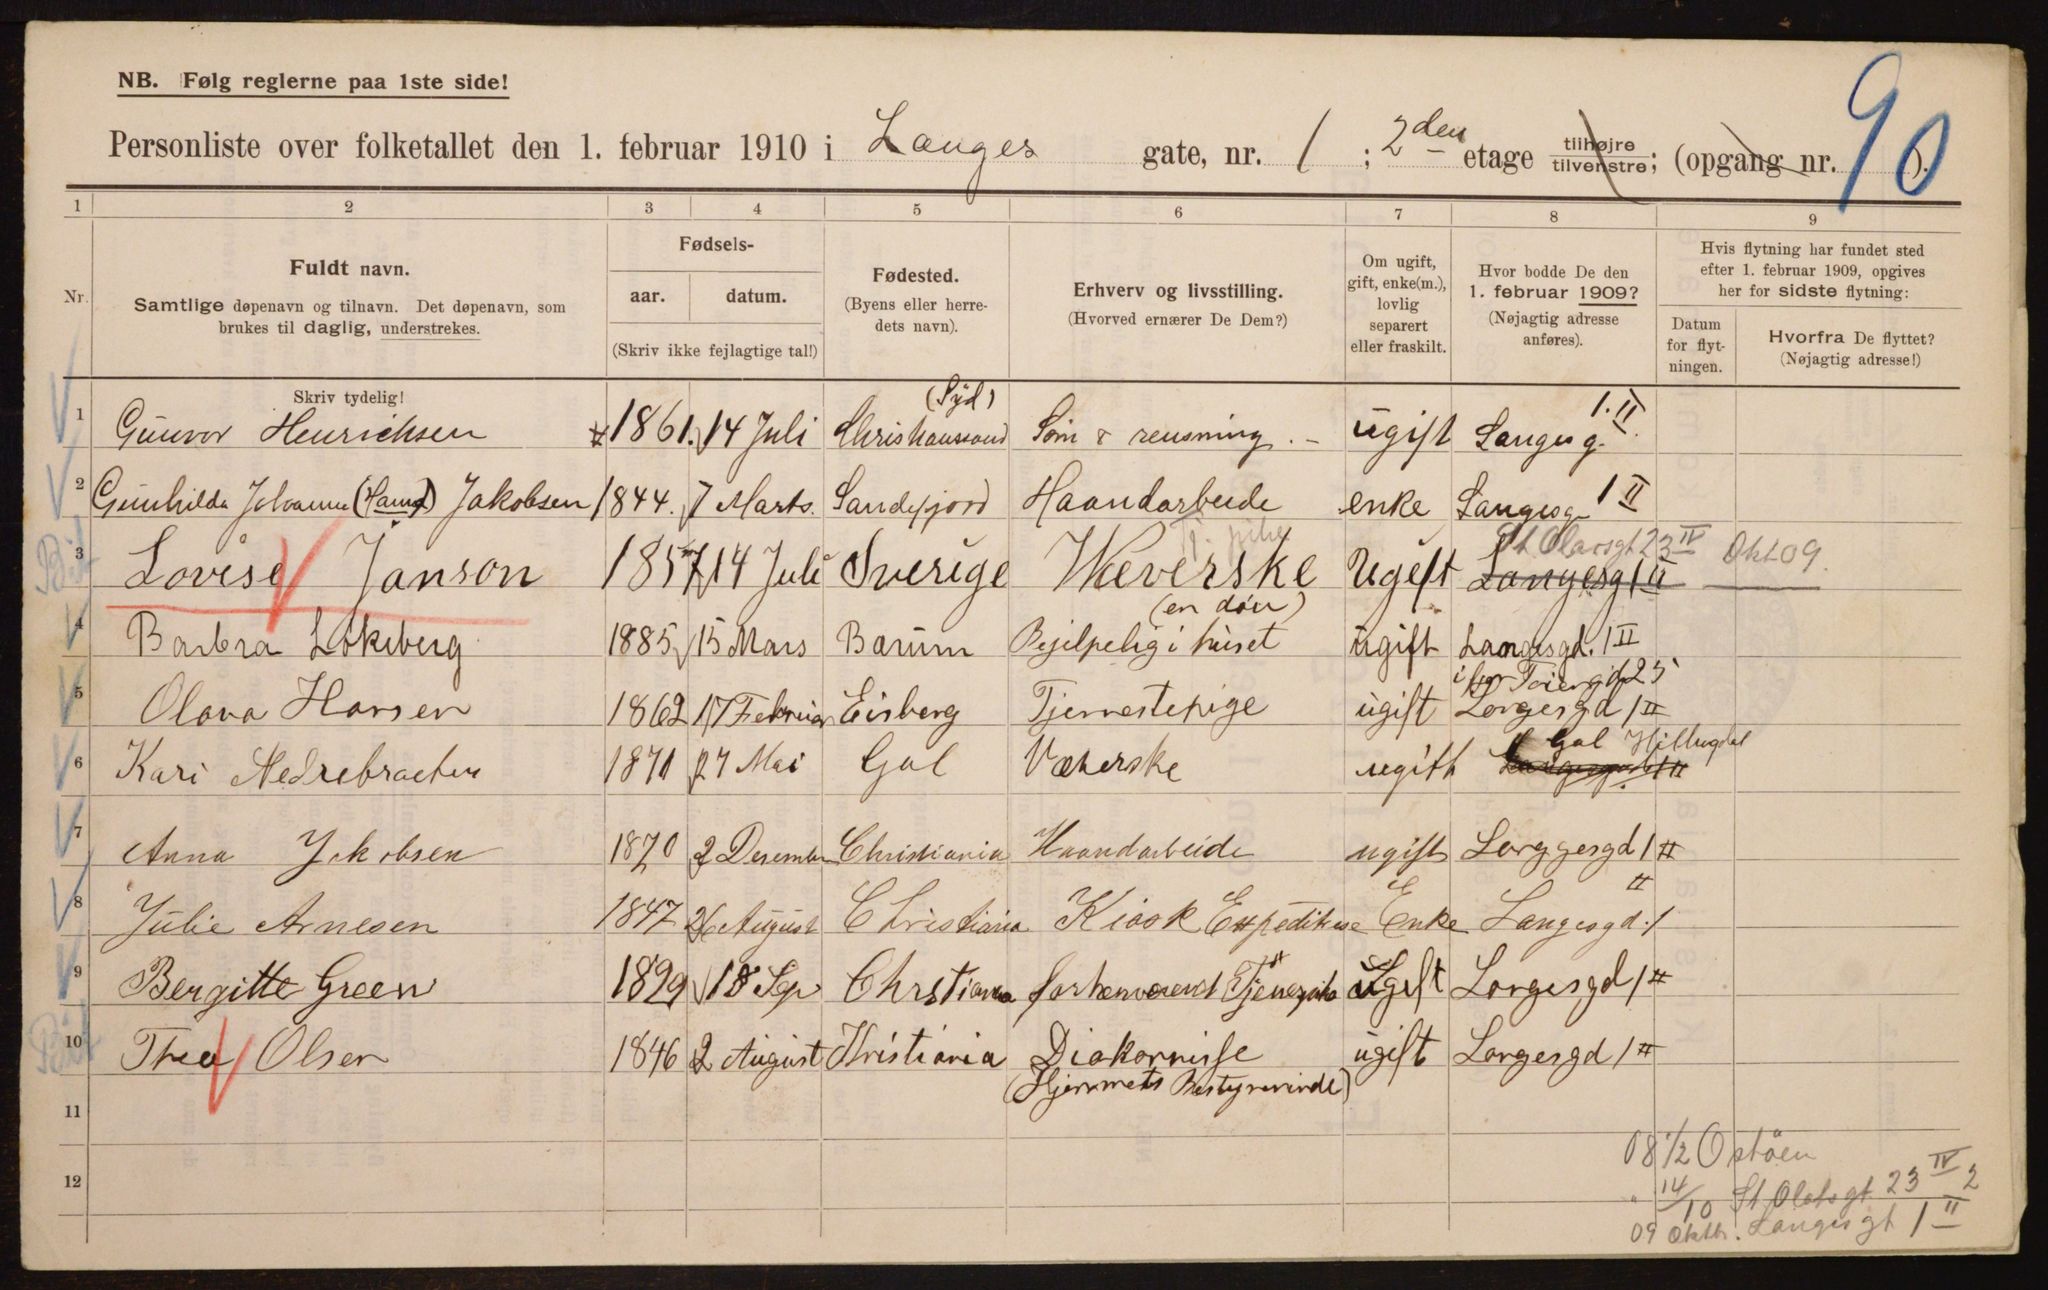 90
NB. Følg reglerne paa 1ste side!
Personliste over folketallet den 1. februar 1910 i Langes gate, nr. 1 ; 2den etage tilhøjre tilvenstre; (opgang nr. ).
1 2 3 4 5 6 7 8 9
Nr.
Fuldt navn.
Samtlige døpenavn og tilnavn. Det døpenavn, som
brukes til daglig, understrekes.
Skriv tydelig!
Fødsels-
aar. datum.
(Skriv ikke fejlagtige tal!)
Fødested.
(Byens eller herre-
dets navn).
Erhverv og livsstilling.
(Hvorved ernærer De Dem?)
Om ugift,
gift, enke(m.),
lovlig
separert
eller fraskilt.
Hvor bodde De den
1. februar 1909?
(Nøjagtig adresse
anføres).
Hvis flytning har fundet sted
efter 1. februar 1909, opgives
her for sidste flytning:
Datum
for flyt-
ningen.
Hvorfra De flyttet?
(Nøjagtig adresse!)
(Syd) 1. II
1 Gunvor Henrichsen 1861. 14 Juli Christianssand Søm & rensning. ugift Langes g.
2 Gunhilda Johanne (Hansd) Jakobsen 1844. 7 Marts. Sandefjord Haandarbeide enke Langesg 1 II
St Olavsgt 23 IV
3 Lovise Janson 1857 14 Juli Sverige Wæverske Ugift Langesg 1 II Okt 09.
(en døv)
4 Barbra Løkeberg 1885 15 Mars Bærum Behjelpelig i huset ugift Langesgd. 1 II
25
5 Olava Hansen 1862 17 Februar Eidsberg Tjenestepige ugift Langesgd 1 II
Gol
6 Kari Nedrebraaten 1871 27 Mai Gol Væverske ugift Langesgd 1 II
7 Anna Jakobsen 1870 2 Desember Christiania Haandarbeide ugift Langgesgd 1 II
II
8 Julie Arnesen 1847 26 August Christiania Kiosk Expeditrise Enke Langesgd. 1
9 Bergitte Green 1829 18 Sep Christiania forhenværend Tjenepike ugift Langesgd 1 II
10 Thea Olsen 1846 2 August Kristiania Diakonnisse ugift Langesgd 1 II
(Hjemmets Bestyrerinde)
11
12
08 1/2 Ostøen
" 14/10 St Olafsgt 23 IV 2
09 Oktbr. Langes gt 1 II